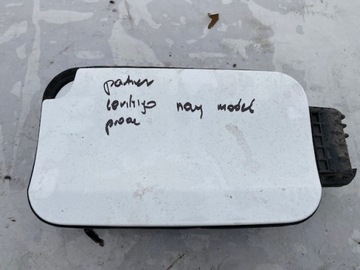 partner
berlingo nowy model
proace